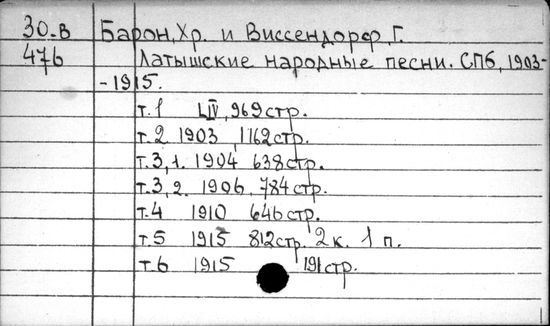 30-в Барон, Хр. и Виссендорф, Г.
476 Латышские народные песни. СПб, 1903-
-1915.
т.1 LIV, 969 стр.
т.2 1903, 1162 стр.
т.3,1. 1904 638 стр.
т.3,2. 1906, 784 стр.
т.4 1910 646 стр.
т.5 1915 812 стр. 2 к. 1 п.
т.6 1915 191 стр.